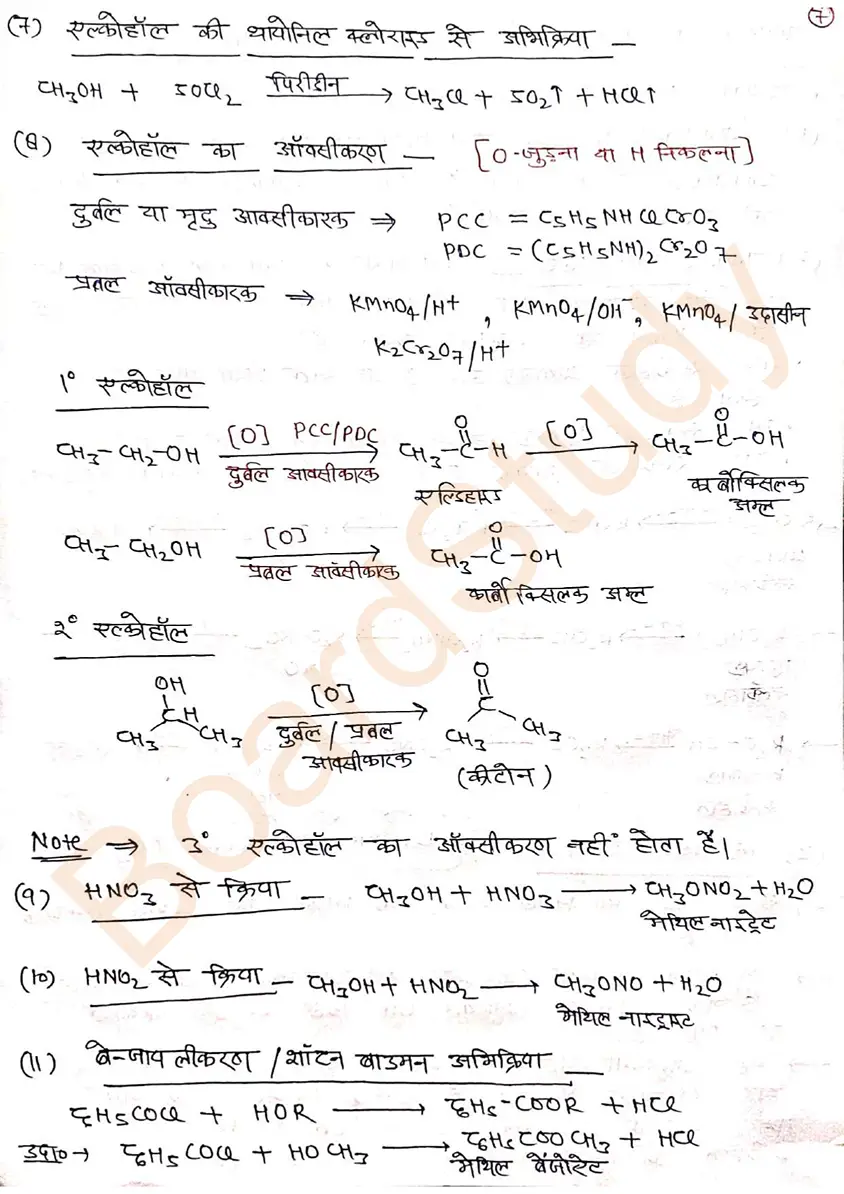 7
(7) एल्कोहॉल की थायोनिल क्लोराइड से अभिक्रिया –
CH3OH + SOCl2 —पिरीडीन→ CH3Cl + SO2↑ + HCl↑
(8) एल्कोहॉल का ऑक्सीकरण – [O-जुड़ना या H निकलना]
दुर्बल या मृदु आक्सीकारक ⇒ PCC = C5H5NHClCrO3
PDC = (C5H5NH)2Cr2O7
प्रबल ऑक्सीकारक ⇒ KMnO4/H+, KMnO4/OH-, KMnO4/उदासीन
K2Cr2O7/H+
1° एल्कोहॉल
[O] PCC/PDC O [O] O
CH3-CH2-OH → CH3-C-H → CH3-C-OH
दुर्बल आक्सीकारक एल्डिहाइड कार्बोक्सिलिक
अम्ल
[O] O
CH3-CH2OH → CH3-C-OH
प्रबल आक्सीकारक कार्बोक्सिलिक अम्ल
2° एल्कोहॉल
OH [O] O
CH → C
CH3 CH3 दुर्बल / प्रबल CH3 CH3
आक्सीकारक (कीटोन)
Note ⇒ 3° एल्कोहॉल का ऑक्सीकरण नहीं होता है।
(9) HNO3 से क्रिया – CH3OH + HNO3 → CH3ONO2 + H2O
मेथिल नाइट्रेट
(10) HNO2 से क्रिया – CH3OH + HNO2 → CH3ONO + H2O
मेथिल नाइट्राइट
(11) बेन्जायलीकरण / शॉटन बाउमन अभिक्रिया –
C6H5COCl + HOR → C6H5-COOR + HCl
उदा० → C6H5COCl + HOCH3 → C6H5COOCH3 + HCl
मेथिल बेंजोएट
BoardStudy